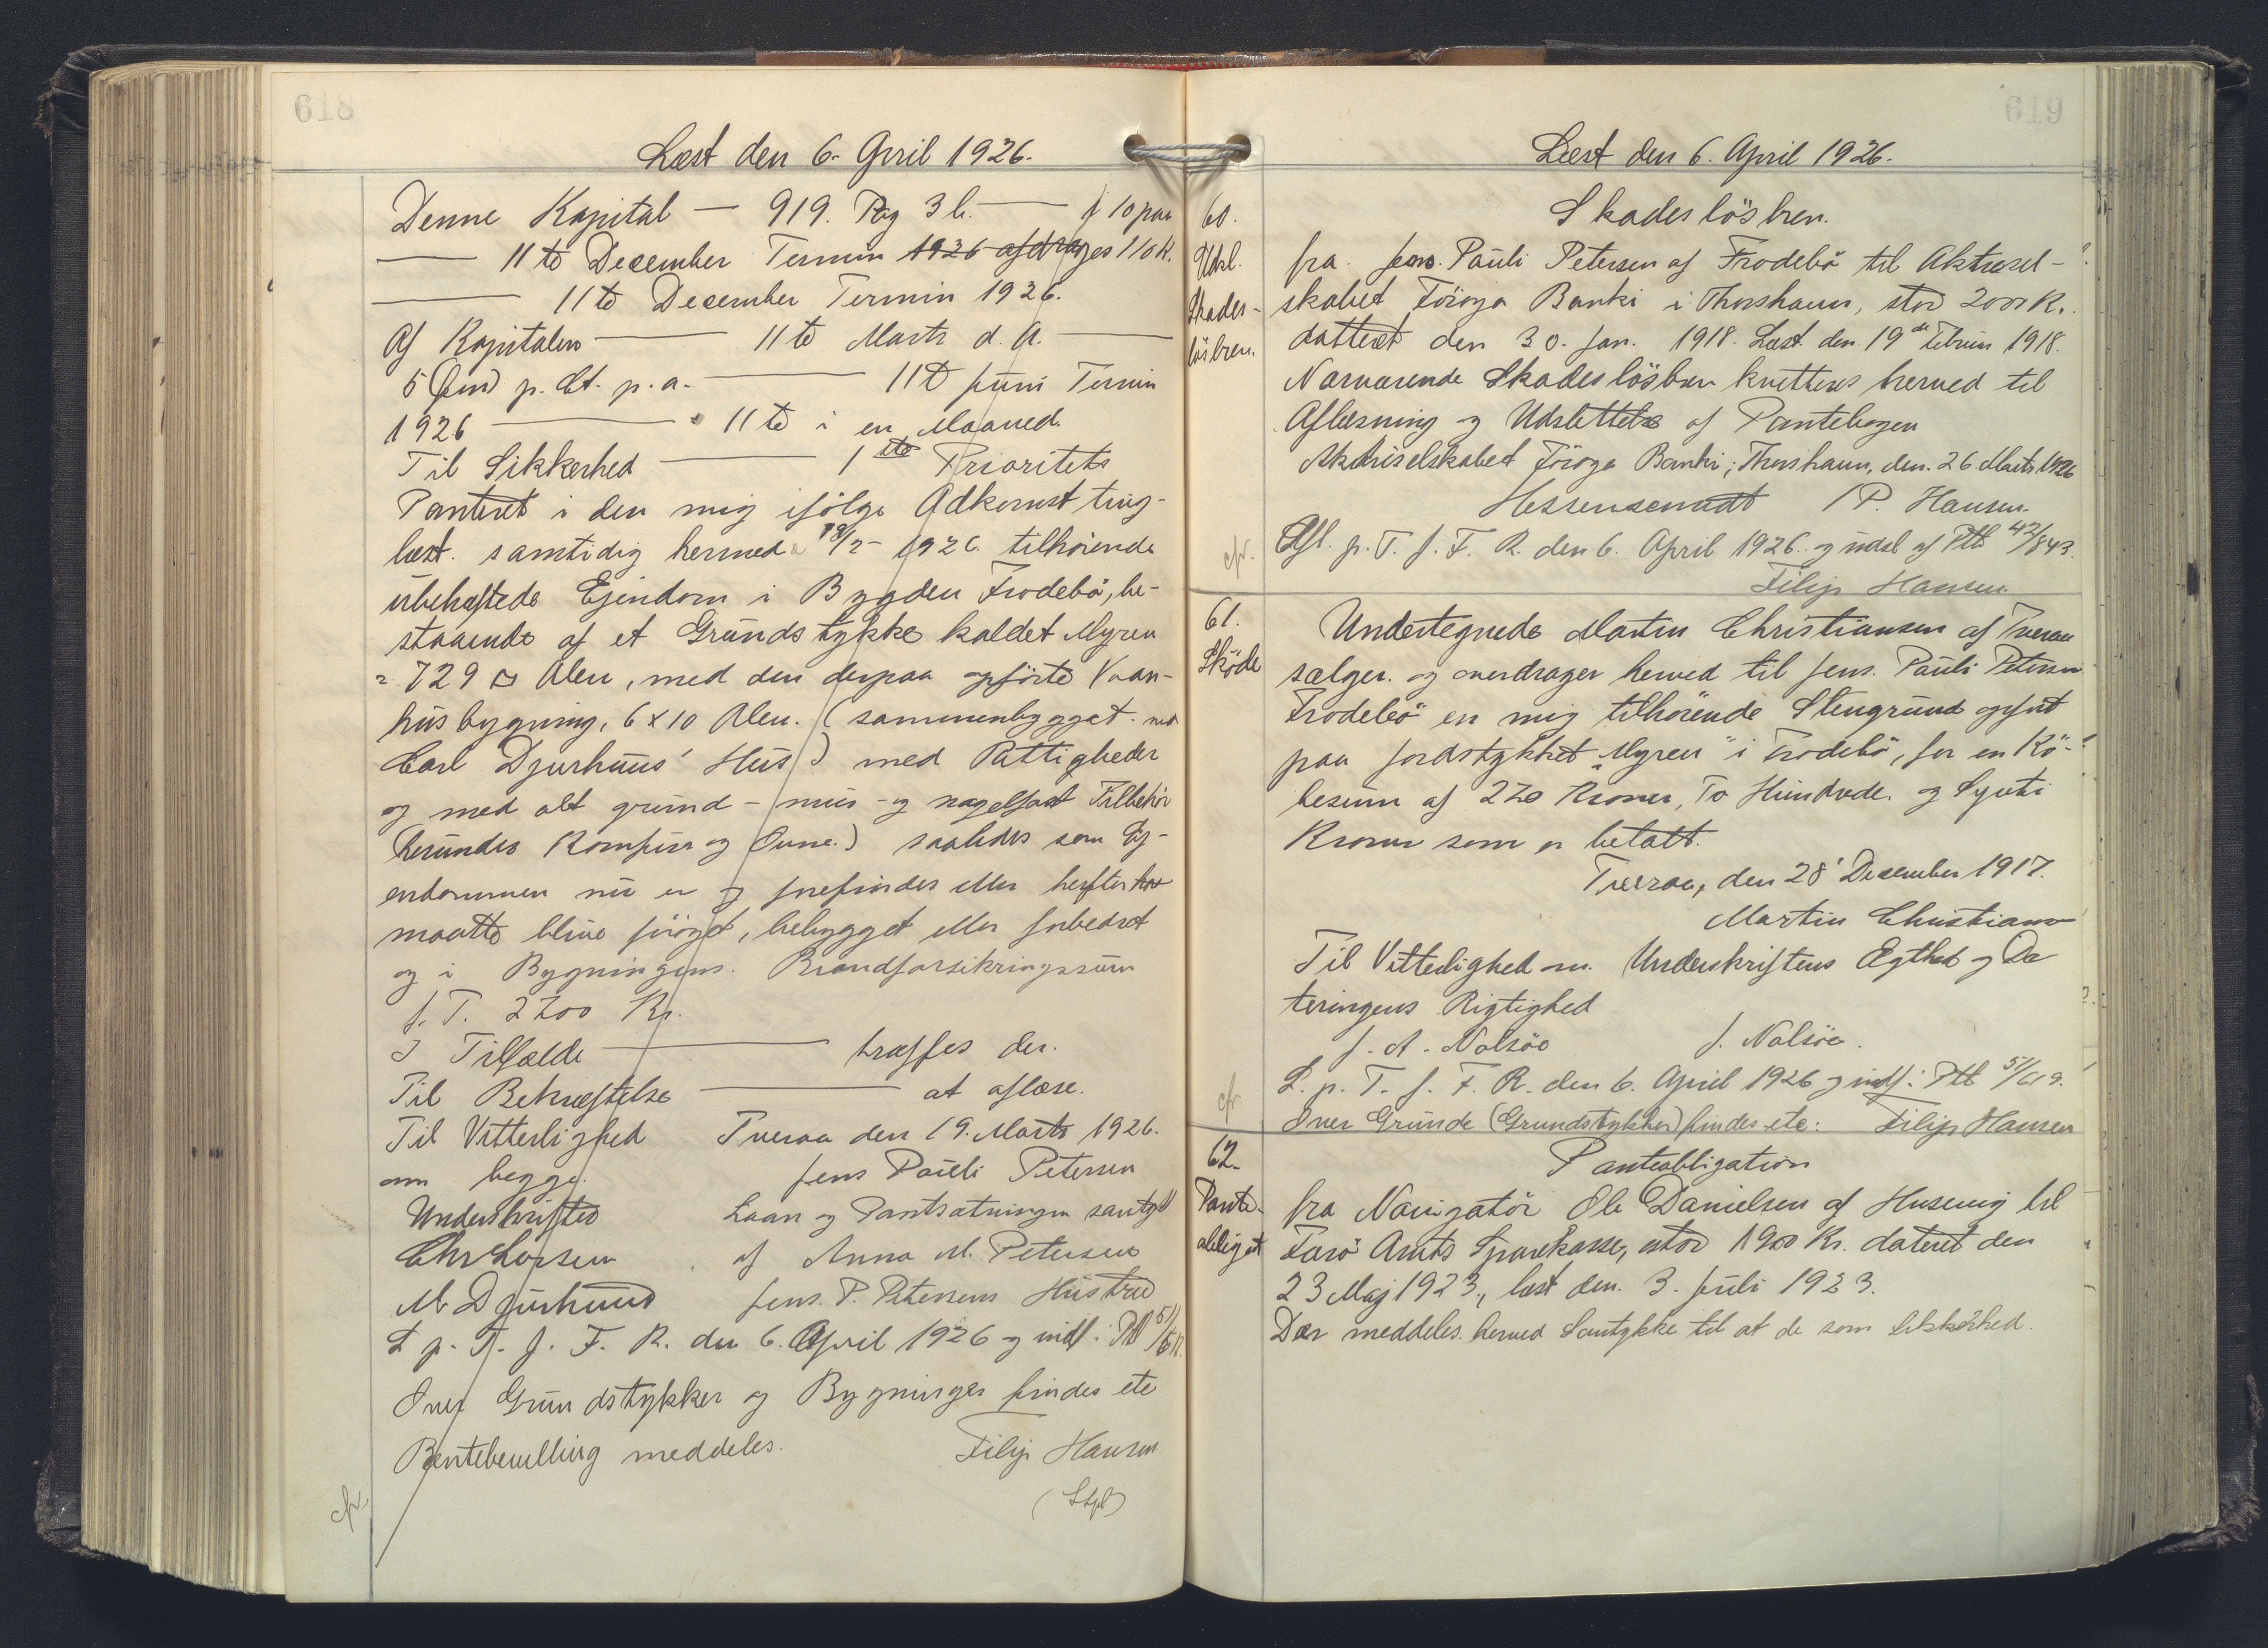 618
Læst den 6. April 1926.
Denne Kapital — 919. Pag 3 b. — § 10 paa
— 11te December Termin 1926 afdrages 110 K.
— 11te December Termin 1926.
Af Kapitalen — 11te Marts d. A. —
5 (fem) p. Ct. p. a. — 11te Juni Termin
1926 — 11te i en Maaned.
Til Sikkerhed — 1ste Prioritets
Panteret i den mig ifölge Adkomst ting-
læst samtidig hermed 1926 tilhörende
ubehæftede Ejendom i Bygden Frodebö, be-
staaende af et Grundstykke kaldet Myren
= 729 □ Alen, med den derpaa opförte Vaan-
husbygning, 6 x 10 Alen. (sammenbygget med
Carl Djurhuus' Hus) med Rettigheder
og med alt grund- mur- og nagelfast Tilbehör
herunder Komfur og Ovne.) saaledes som Ej-
endommen nu er og forefindes eller herefter
maatte blive foröget, bebygget eller forbedret
og i Bygningens Brandforsikringssum
f. T. 2200 Kr.
I Tilfælde — træffes der.
Til Bekræftelse — at aflæse.
Til Vitterlighed Tveraa den 19. Marts 1926.
om begge Jens Pauli Petersen
Underskrifter Laan og Pantsætningen samtykt
Chr Larsen af Anna M. Petersen
M. Djurhuus Jens. P. Petersens Hustru
L. p. T. f. F. R. den 6. April 1926 og indf. i Ptb 51/611.
Over Grundstykker og Bygninger findes etc
Rentebevilling meddeles. Filip Hansen
(Stpl)
cfr.
619
Læst den 6. April 1926.
60.
Udsl.
Skades-
lösbrev.
Skadeslösbrev.
fra Jens Pauli Petersen af Frodebö til Aktiesel-
skabet Föroya Banki i Thorshavn, stor 2000 K.
dateret den 30. Jan. 1918. Læst den 19de Februar 1918.
Nærværende Skadeslösbrev kvitteres herved til
Aflæsning og Udslettelse af Pantebogen
Aktieselskabet Föroya Banki, Thorshavn, den 26 Marts 1926
P. Hansen.
cfr.
Afl. p. T. f. F. R. den 6. April 1926 og udsl af Ptb 42/843.
Filip Hansen
61.
Sköde
Undertegnede Martin Christiansen af Tveraa
sælger og overdrager herved til Jens Pauli Petersen
Frodebö en mig tilhörende Stengrund opfört
paa Jordstykket „Myren" i Frodebö, for en Kö-
besum af 220 Kroner, To Hundrede og Tyve
Kroner som er betalt.
Tveraa, den 28 December 1917.
Martin Christiansen
Til Vitterlighed om Underskriftens Ægthed og Da
teringens Rigtighed
J. A. Nolsöe J. Nolsöe.
cfr.
L. p. T. f. F. R. den 6. April 1926 og indf. i Ptb 51/619.
Over Grunde (Grundstykker) findes etc: Filip Hansen
62.
Pante-
obligat
Panteobligation
fra Navigatör Ole Danielsen af Husevig til
Færö Amts Sparekasse, stor 1900 Kr. dateret den
23 Maj 1923, læst den 3. Juli 1923.
Der meddeles herved Samtykke til at de som Sikkerhed